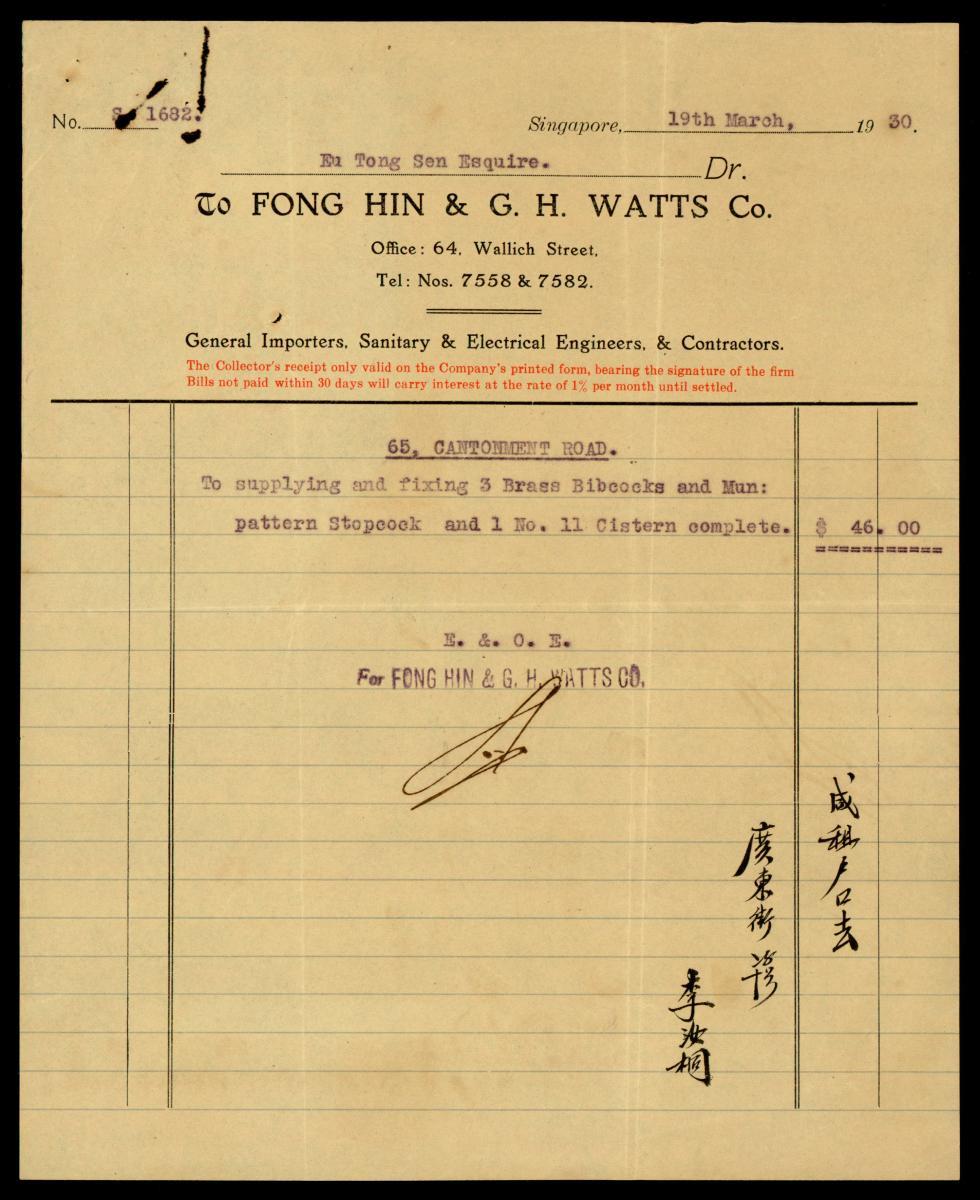 No. S. 1682.
Singapore, 19th March, 1930.
Eu Tong Sen Esquire. Dr.
To FONG HIN & G. H. WATTS Co.
Office: 64, Wallich Street,
Tel: Nos. 7558 & 7582.
General Importers, Sanitary & Electrical Engineers, & Contractors.
The Collector's receipt only valid on the Company's printed form, bearing the signature of the firm
Bills not paid within 30 days will carry interest at the rate of 1% per month until settled.
65, CANTONMENT ROAD.
To supplying and fixing 3 Brass Bibcocks and Mun:
pattern Stopcock and 1 No. 11 Cistern complete. $ 46.00
E. &. O. E.
For FONG HIN & G. H. WATTS CO.
成租戶口去
廣東街
李汝桐